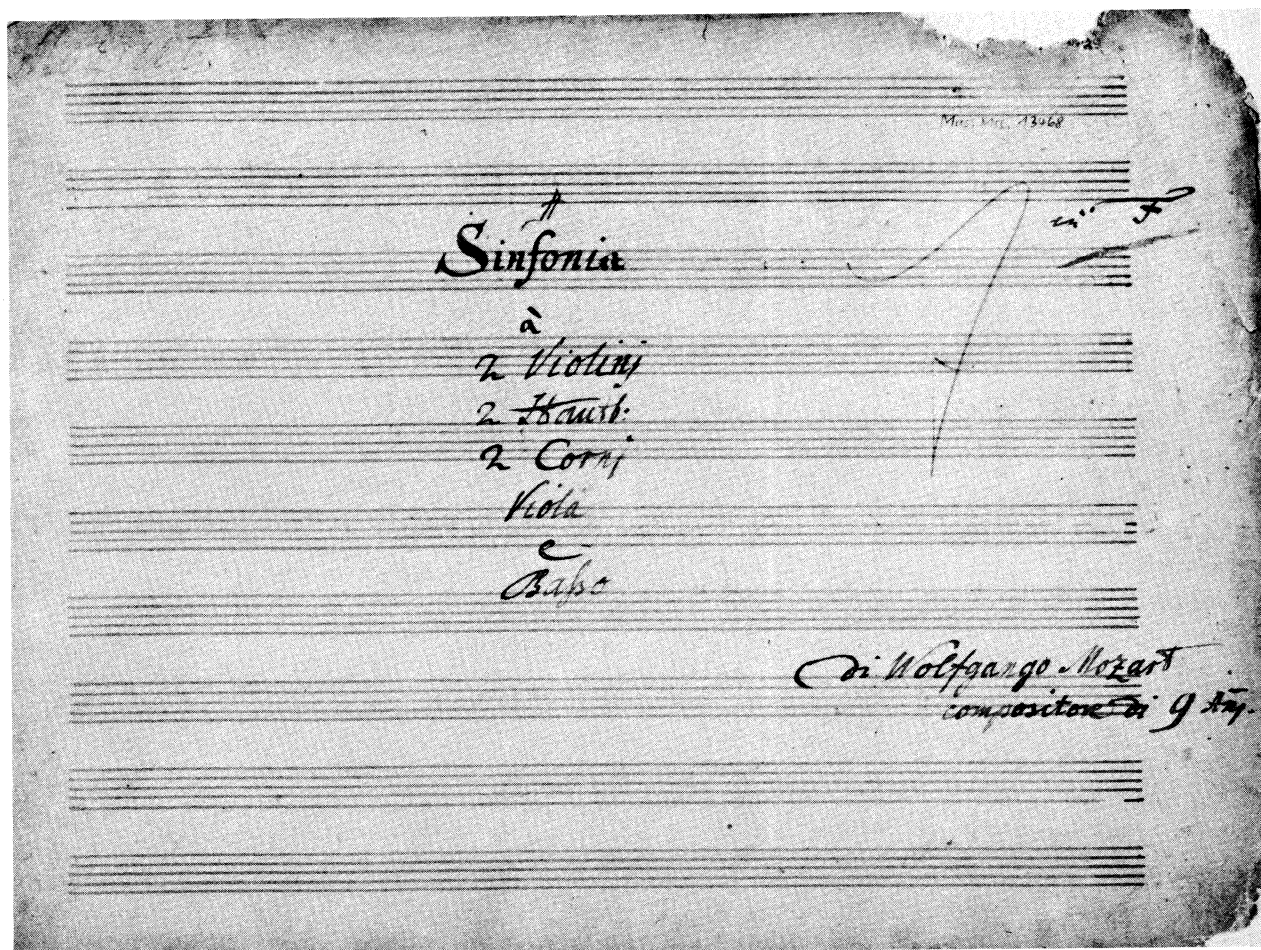 Mus. Ms. 13468
in F
Sinfonia
à
2 Violinj
2 Hautb:
2 Cornj
Viola
e
Baßo
di Wolfgango Mozart
compositore di 9 Añj.